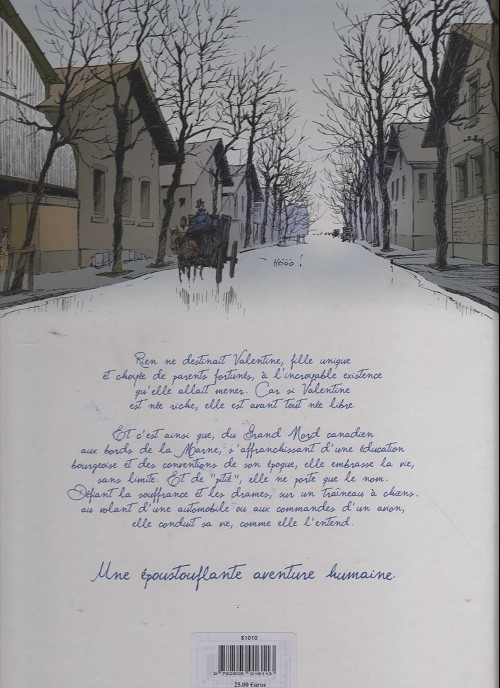 Hôôô !
Rien ne destinait Valentine, fille unique
et choyée de parents fortunés, à l'incroyable existence
qu'elle allait mener. Car si Valentine
est née riche, elle est avant tout née libre.
Et c'est ainsi que, du Grand Nord canadien
aux bords de la Marne, s'affranchissant d'une éducation
bourgeoise et des conventions de son époque, elle embrasse la vie,
sans limite. Et de "pitié", elle ne porte que le nom.
Défiant la souffrance et les drames, sur un traîneau à chiens,
au volant d'une automobile ou aux commandes d'un avion,
elle conduit sa vie, comme elle l'entend.
Une époustouflante aventure humaine.
81010
25.00 Euros